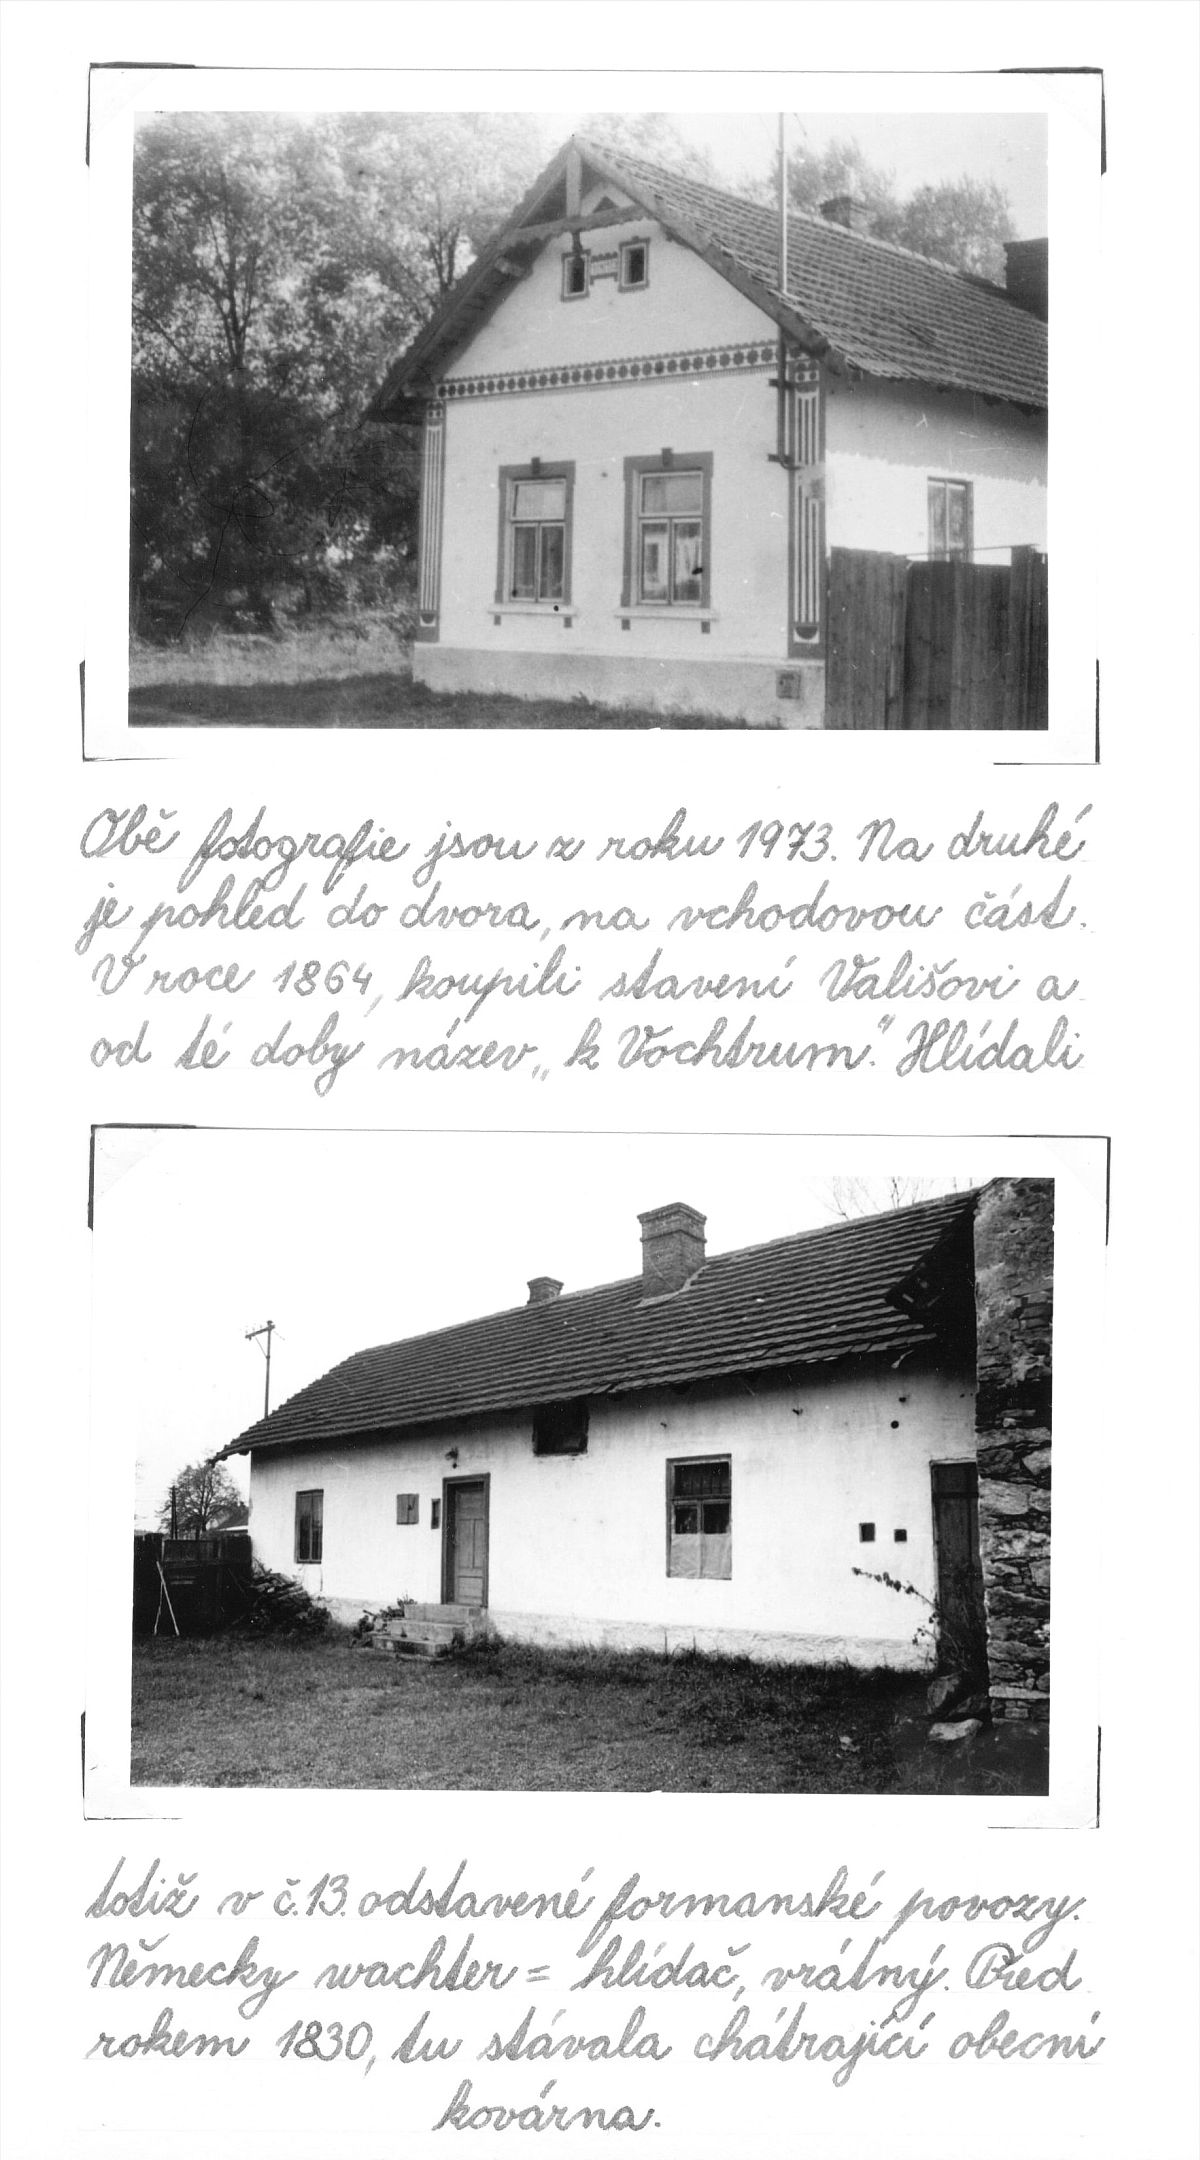 Obě fotografie jsou z roku 1973. Na druhé
je pohled do dvora, na vchodovou část.
V roce 1864, koupili stavení Vališovi a
od té doby název „k Vochtrum." Hlídali
totiž v č.13. odstavené formanské povozy.
Německy wachter = hlídač, vrátný. Před
rokem 1830, tu stávala chátrající obecní
kovárna.